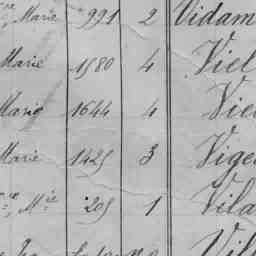 Marie 991 2 Vidam
Marie 1580 4 Viel
Marie 1644 4 Vie
Marie 1425 3 Vige
Mie 205 1 Vila